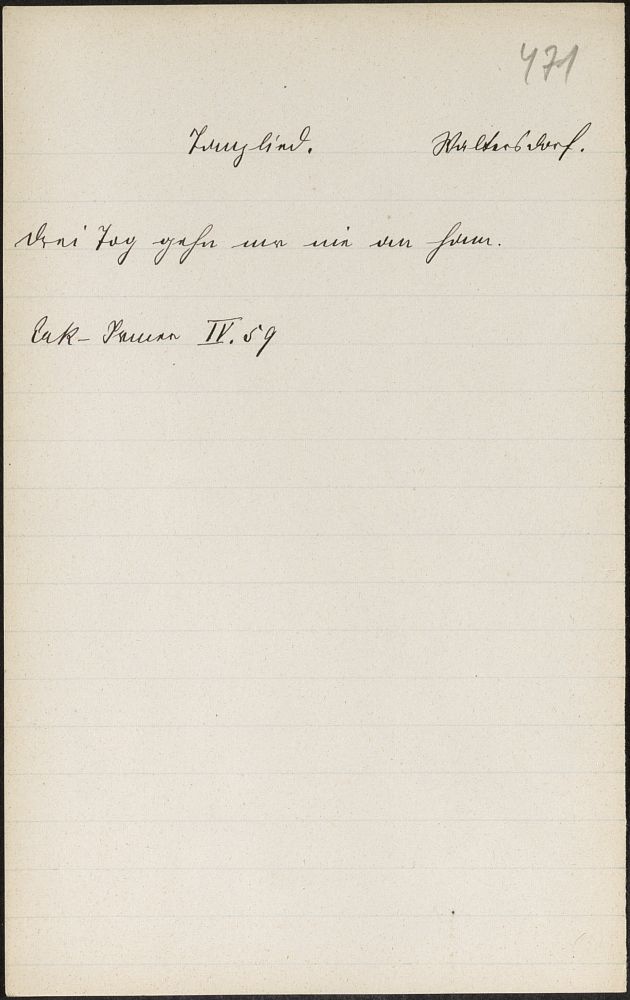 471
Tanzlied. Waltersdorf.
Drei Tag gehn mr nie an ham.
Erk-Irmer IV. 59